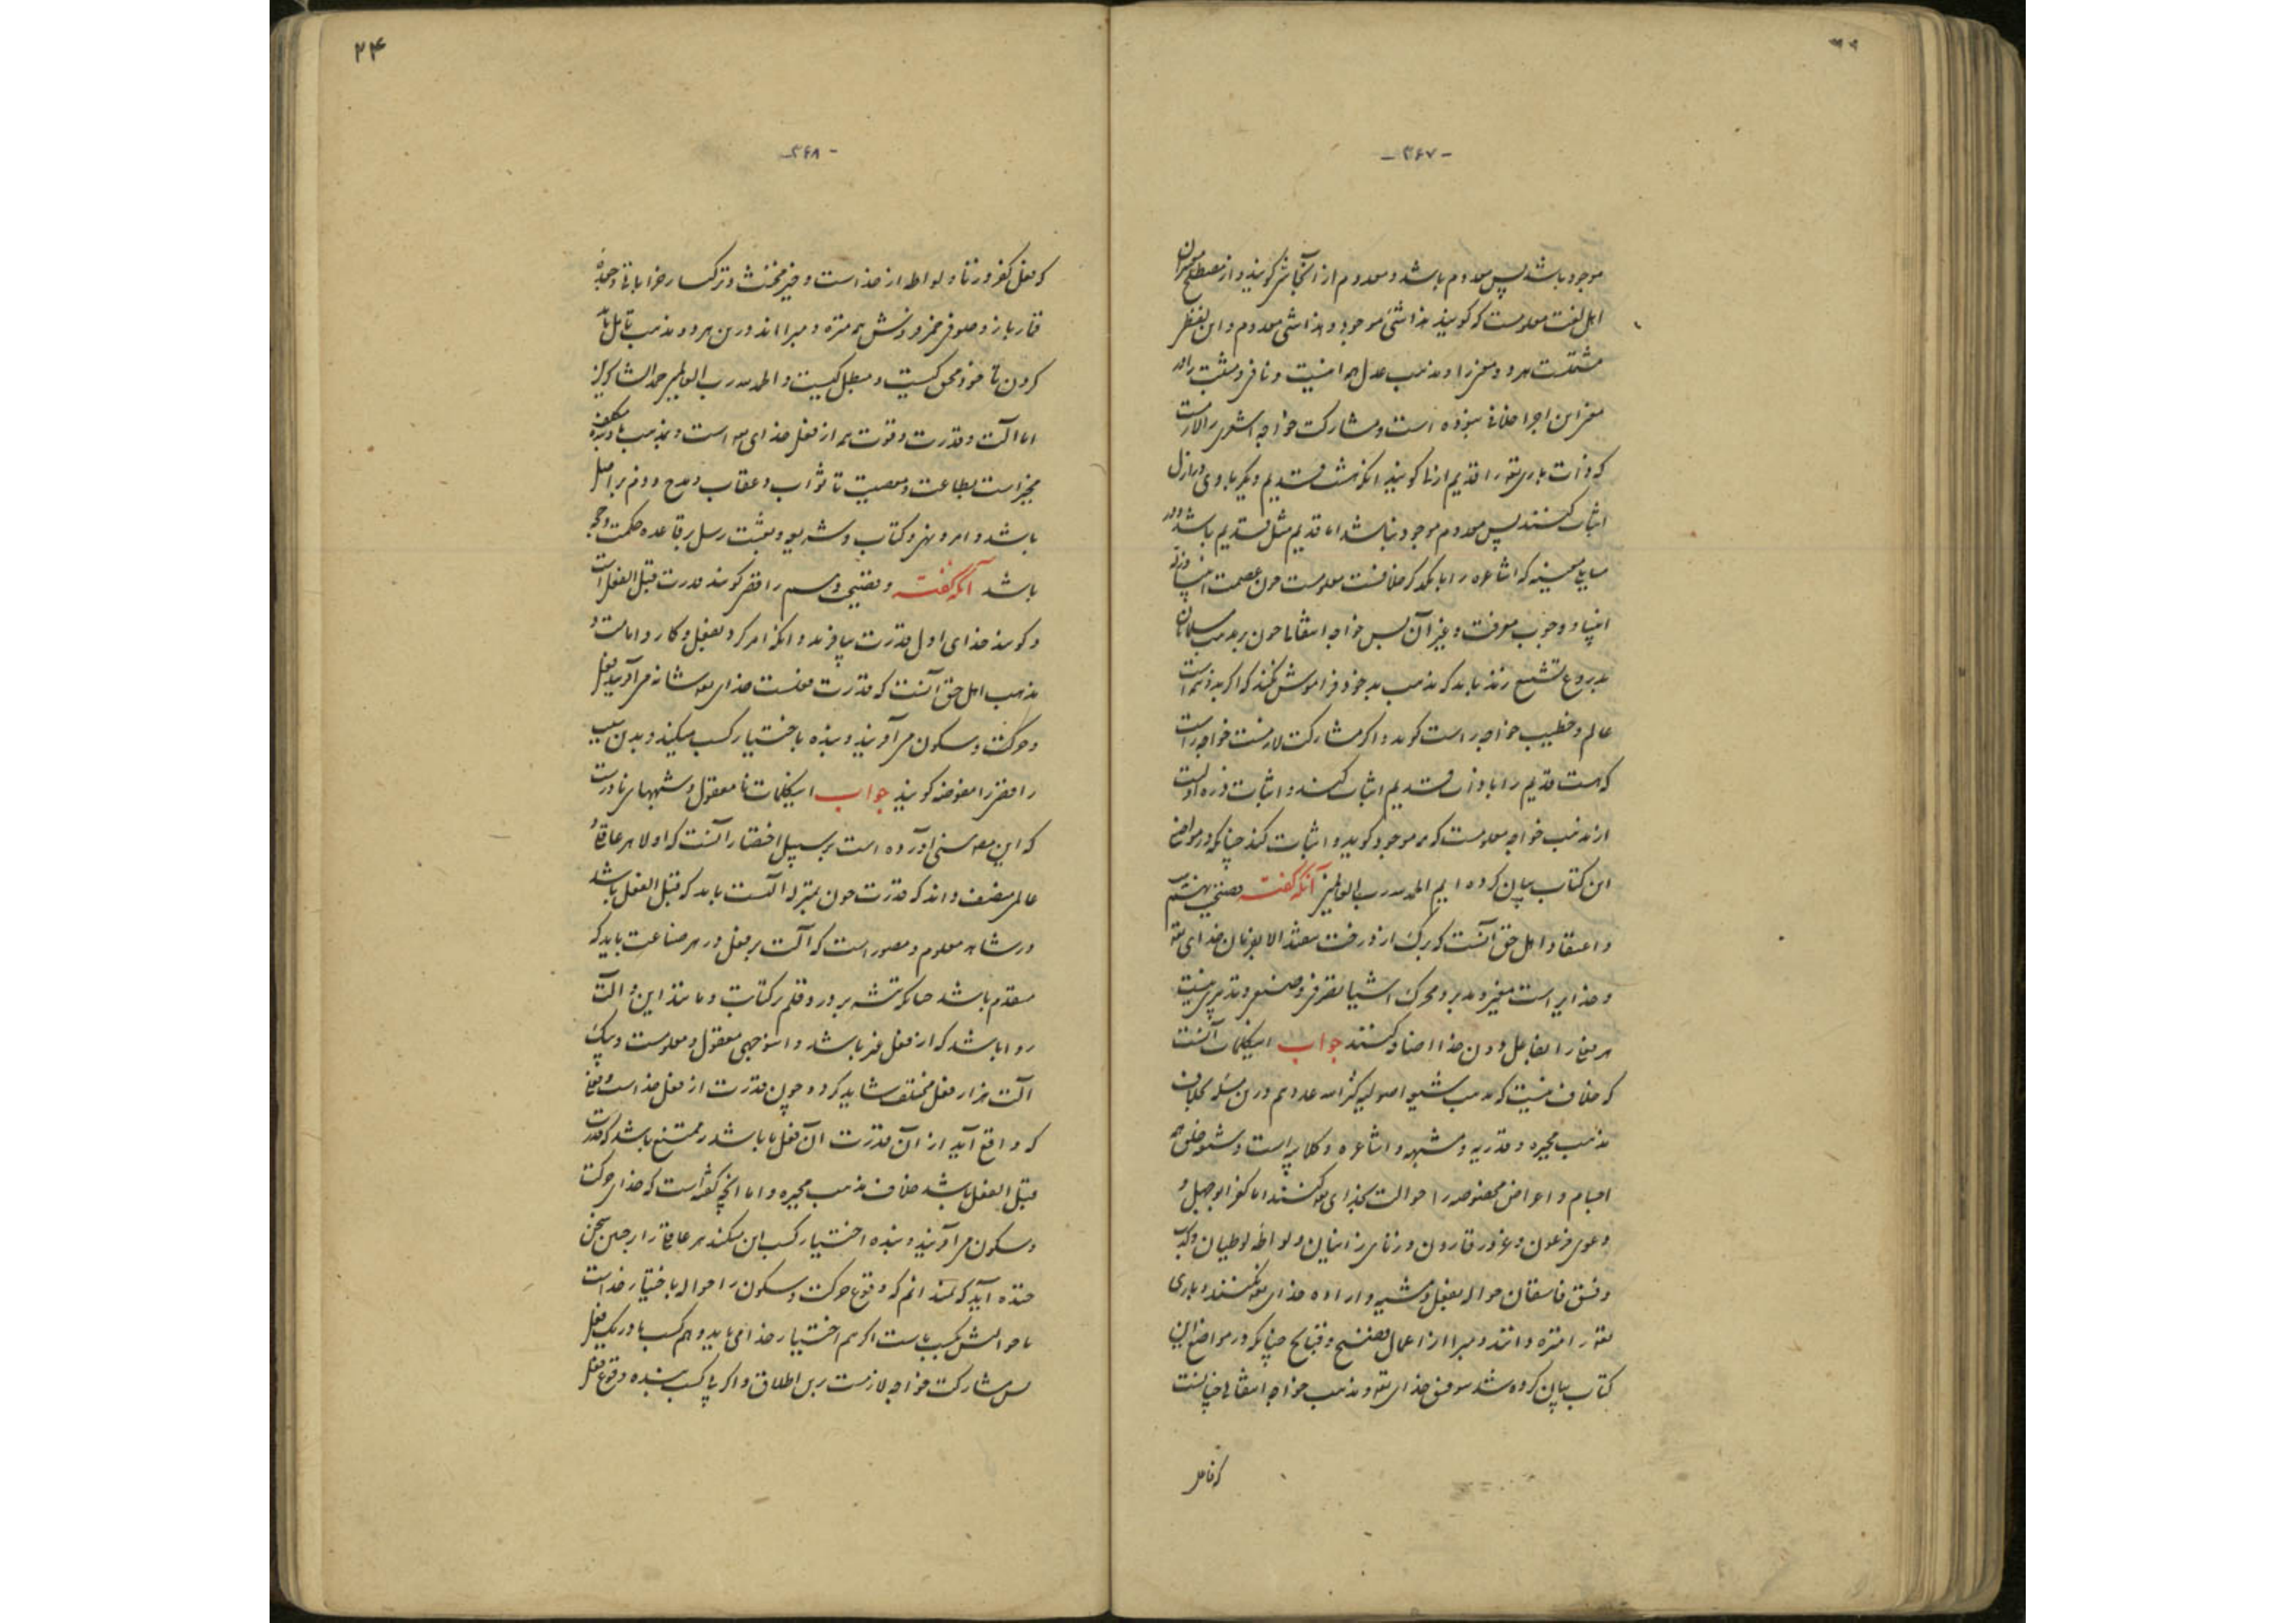 - ۳۶۷ -
موجود باشد پس معدوم باشد و معدوم از آنجا شر کویند و از مصطلح
اهل لغت معلومست که کویند هذا شئ موجود و هذا شئ معدوم و این لفظ
مشتملست هر دو معنی را و مذهب عدل هم اینست و نافی و مثبت را در
معنی این اجرا خلافی نبوده است و مشارکت خواجه اشعری را لازمست
که ذات باری تعو را قدیم ازنا کویند انکه هشت قدیم دیکر با وی در ازل
اثبات کنند پس معدوم موجود نباشد اما قدیم مثل قدیم باشد
که اشاعره را با که خلافست معلومست چون عصمت
انبیا و وجوب معرفت و غیر آن پس خواجه انتقالی چون بر مذهب مسلمانان
بدروغ تشنیع زند باید که مذهب بد خود فراموش نکند که اکر
عالم و خطیب خواجه راست کوید و اکر مشارکت لازمست خواجه راست
که هست قدیم را با ذات قدیم اثبات کند و اثبات
از مذهب خواجه معلومست که موجود کوید و اثبات کند چنانکه در مواضع
این کتاب بیان کرده ایم الحمد لله رب العالمین آنکه گفت فضیحت هشتم
و اعتقاد اهل حق آنست که برک از درخت نیفتد الا بفرمان خدای تعو
و خدایراست مغیر و مدبر و محرک اشیا تصرفی و صنعی و تدبیری نیست
هر فعلی را بفاعل دون خدا اضافه کنند جواب این کلمات آنست
که خلاف نیست که مذهب شیعه اصولیه کثرهم الله عددهم درین مسئله بخلاف
مذهب مجبره و قدریه و مشبهه و اشاعره و کلابیه است و شیعه خلق همه
اجسام و اعراض مخصوصه را حوالت بخدای تعو کنند اما کفر ابوجهل و
دعوی فرعون و غرور قارون و زنای زانیان و لواطه لوطیان و
و فسق فاسقان حواله بفعل و مشیت و اراده خدای تعو نکنند و باری
تعو را منزه دانند و مبرا از اعمال فضیح و قبایح چنانکه در مواضع این
کتاب بیان کرده شد بتوفیق خدای تعو و مذهب خواجه انتقالی چنانست
که فاعل
۲۴
- ۳۶۸ -
که فعل کفر و زنا و لواط از خداست و حیز مخنث و ترکسار خراباتی و
قمار باز و صوفی همه منزه و مبرا اند درین هر دو مذهب تامل باید
کردن تا خود محق کیست و مبطل کیست و الحمد لله رب العالمین حمد الشاکرین
اما آلت و قدرت و قوت همه از فعل خدای تعو است و بمذهب ما بنده
مخیر است بطاعت و معصیت تا ثواب و عقاب و مدح و ذم بر اصل
باشد و امر و نهی و کتاب و شریعت و بعثت رسل بر قاعده حکمت و حجه
باشد آنکه گفت و فضیحت رافضی کویند قدرت قبل الفعل است
و کویند خدای اول قدرت بیافریند و آنکه امر کرد بفعل و کار و اما
مذهب اهل حق آنست که قدرت فعلست خدای تعو شانه می آفریند فعل
و حرکت و سکون می آفریند و بنده باختیار کسب میکند و بدین سبب
رافضی را مفوضه کویند جواب این کلمات نا معقول و شبههای نادرست
که این مصنف آورده است بر سبیل اختصار آنست که اولا هر عاقل و
عالم منصف داند که قدرت چون بمنزله آلتست باید که قبل الفعل باشد
در شاهد معلوم و مصور است که آلت هر فعل در هر صناعت باید که
مقدم باشد چنانکه تیشه بر در و قلم بر کتابت و مانند این و آلت
روا باشد که از فعل غیر باشد و این وجهی معقول و معلومست و بیک
آلت هزار فعل مختلف شاید کرد و چون قدرت از فعل خداست و فعلی
که واقع آید از آن قدرت آن فعل ما باشد ممتنع باشد که قدرت
قبل الفعل باشد خلاف مذهب مجبره و اما آنچه کفته است که خدای حرکت
و سکون می آفریند و بنده اختیار کسب این میکند هر عاقلی را بر چنین سخن
خنده آید که نمیدانم که وقوع حرکت و سکون را حواله باختیار خداست
یا حوالتش بکسب ماست اکر هم اختیار خدا می باید و هم کسب ما در یک فعل
پس مشارکت خواجه لازمست برین اطلاق و اکر با کسب بنده وقوع فعل